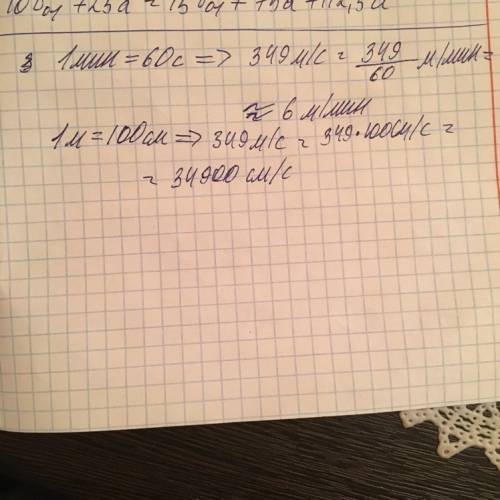 100a₁ + 25d = 150a₁ + 75d + 112,5d
3 1 мин = 60с => 349 м/с = 349/60 м/мин =
≈ 6 м/мин
1м = 100см => 349 м/с = 349·100см/с =
= 34900 см/с